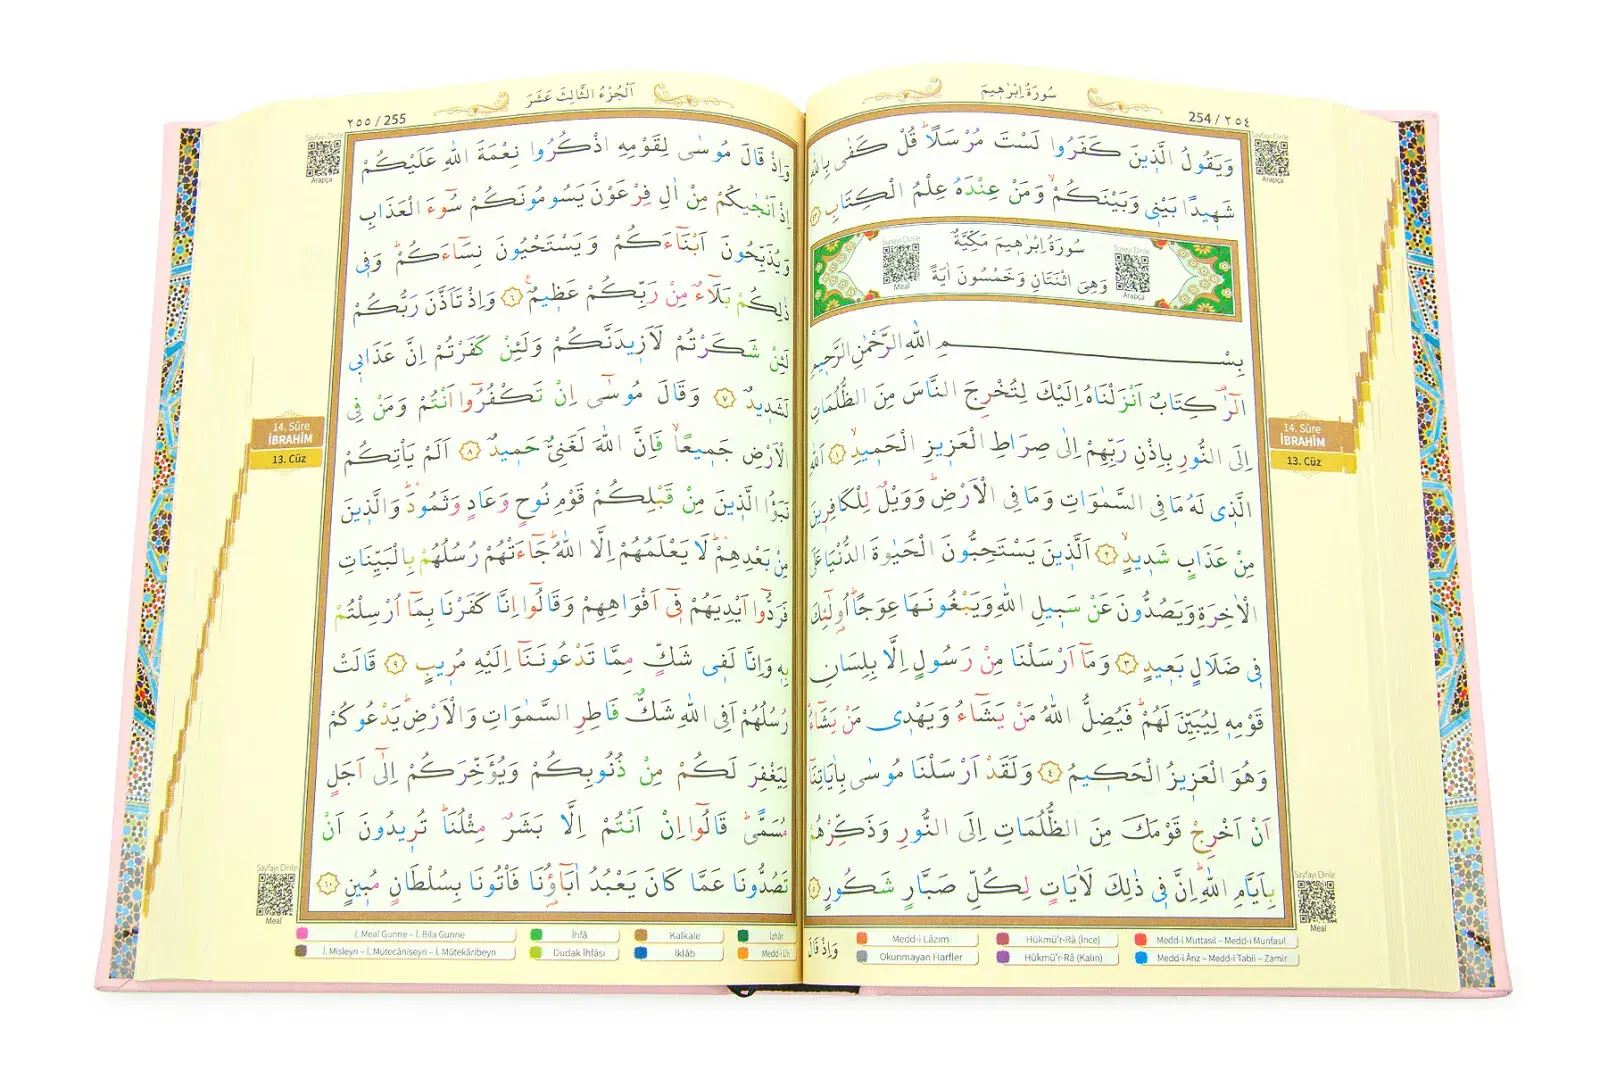 سُورَةُ اِبْرٰه۪يمَ
254 / ٢٥٤
Sayfayı Dinle
Arapça
وَيَقُولُ الَّذ۪ينَ كَفَرُوا لَسْتَ مُرْسَلًاۜ قُلْ كَفٰى بِاللّٰهِ
شَه۪يدًا بَيْن۪ي وَبَيْنَكُمْۙ وَمَنْ عِنْدَهُ عِلْمُ الْكِتَابِ ﴿٤٣﴾
سُورَةُ اِبْرٰه۪يمَ مَكِّيَّةٌ
وَهِيَ اثْنَتَانِ وَخَمْسُونَ اٰيَةً
Sureyi Dinle
Meal
Sureyi Dinle
Arapça
بِسْمِ اللّٰهِ الرَّحْمٰنِ الرَّح۪يمِ
الٓرٰ۠ كِتَابٌ اَنْزَلْنَاهُ اِلَيْكَ لِتُخْرِجَ النَّاسَ مِنَ الظُّلُمَاتِ
اِلَى النُّورِ بِاِذْنِ رَبِّهِمْ اِلٰى صِرَاطِ الْعَز۪يزِ الْحَم۪يدِۙ ﴿١﴾ اَللّٰهِ
الَّذ۪ي لَهُ مَا فِي السَّمٰوَاتِ وَمَا فِي الْاَرْضِۜ وَوَيْلٌ لِلْكَافِر۪ينَ
مِنْ عَذَابٍ شَد۪يدٍۙ ﴿٢﴾ اَلَّذ۪ينَ يَسْتَحِبُّونَ الْحَيٰوةَ الدُّنْيَا عَلَى
الْاٰخِرَةِ وَيَصُدُّونَ عَنْ سَب۪يلِ اللّٰهِ وَيَبْغُونَهَا عِوَجًاۜ اُو۬لٰٓئِكَ
ف۪ي ضَلَالٍ بَع۪يدٍ ﴿٣﴾ وَمَٓا اَرْسَلْنَا مِنْ رَسُولٍ اِلَّا بِلِسَانِ
قَوْمِه۪ لِيُبَيِّنَ لَهُمْۜ فَيُضِلُّ اللّٰهُ مَنْ يَشَٓاءُ وَيَهْد۪ي مَنْ يَشَٓاءُۜ
وَهُوَ الْعَز۪يزُ الْحَك۪يمُ ﴿٤﴾ وَلَقَدْ اَرْسَلْنَا مُوسٰى بِاٰيَاتِنَٓا
اَنْ اَخْرِجْ قَوْمَكَ مِنَ الظُّلُمَاتِ اِلَى النُّورِ وَذَكِّرْهُمْ
بِاَيَّامِ اللّٰهِۜ اِنَّ ف۪ي ذٰلِكَ لَاٰيَاتٍ لِكُلِّ صَبَّارٍ شَكُورٍ ﴿٥﴾
14. Sûre
İBRAHİM
13. Cüz
Sayfayı Dinle
Meal
وَاِذْ قَالَ
Medd-i Lâzım
Hükmü'r-Râ (İnce)
Medd-i Muttasıl – Medd-i Munfasıl
Okunmayan Harfler
Hükmü'r-Râ (Kalın)
Medd-i Ârız – Medd-i Tabii – Zamir
اَلْجُزْءُ الثَّالِثَ عَشَرَ
٢٥٥ / 255
Sayfayı Dinle
Arapça
وَاِذْ قَالَ مُوسٰى لِقَوْمِهِ اذْكُرُوا نِعْمَةَ اللّٰهِ عَلَيْكُمْ
اِذْ اَنْجٰيكُمْ مِنْ اٰلِ فِرْعَوْنَ يَسُومُونَكُمْ سُٓوءَ الْعَذَابِ
وَيُذَبِّحُونَ اَبْنَٓاءَكُمْ وَيَسْتَحْيُونَ نِسَٓاءَكُمْۜ وَف۪ي
ذٰلِكُمْ بَلَٓاءٌ مِنْ رَبِّكُمْ عَظ۪يمٌ۟ ﴿٦﴾ وَاِذْ تَاَذَّنَ رَبُّكُمْ
لَئِنْ شَكَرْتُمْ لَاَز۪يدَنَّكُمْ وَلَئِنْ كَفَرْتُمْ اِنَّ عَذَاب۪ي
لَشَد۪يدٌ ﴿٧﴾ وَقَالَ مُوسٰٓى اِنْ تَكْفُرُٓوا اَنْتُمْ وَمَنْ فِي
الْاَرْضِ جَم۪يعًاۙ فَاِنَّ اللّٰهَ لَغَنِيٌّ حَم۪يدٌ ﴿٨﴾ اَلَمْ يَأْتِكُمْ
نَبَؤُا الَّذ۪ينَ مِنْ قَبْلِكُمْ قَوْمِ نُوحٍ وَعَادٍ وَثَمُودَۜ وَالَّذ۪ينَ
مِنْ بَعْدِهِمْۜ لَا يَعْلَمُهُمْ اِلَّا اللّٰهُۜ جَٓاءَتْهُمْ رُسُلُهُمْ بِالْبَيِّنَاتِ
فَرَدُّٓوا اَيْدِيَهُمْ ف۪ٓي اَفْوَاهِهِمْ وَقَالُٓوا اِنَّا كَفَرْنَا بِمَٓا اُرْسِلْتُمْ
بِه۪ وَاِنَّا لَف۪ي شَكٍّ مِمَّا تَدْعُونَنَٓا اِلَيْهِ مُر۪يبٍ ﴿٩﴾ قَالَتْ
رُسُلُهُمْ اَفِي اللّٰهِ شَكٌّ فَاطِرِ السَّمٰوَاتِ وَالْاَرْضِۜ يَدْعُوكُمْ
لِيَغْفِرَ لَكُمْ مِنْ ذُنُوبِكُمْ وَيُؤَخِّرَكُمْ اِلٰٓى اَجَلٍ
مُسَمًّىۜ قَالُٓوا اِنْ اَنْتُمْ اِلَّا بَشَرٌ مِثْلُنَاۜ تُر۪يدُونَ اَنْ
تَصُدُّونَا عَمَّا كَانَ يَعْبُدُ اٰبَٓاؤُ۬نَا فَأْتُونَا بِسُلْطَانٍ مُب۪ينٍ ﴿١٠﴾
14. Sûre
İBRAHİM
13. Cüz
Sayfayı Dinle
Meal
İ. Meal Gunne – İ. Bila Gunne
İhfâ
Kalkale
İzhâr
İ. Misleyn – İ. Mütecâniseyn – İ. Mütekâribeyn
Dudak İhfâsı
İklâb
Medd-i Lîn